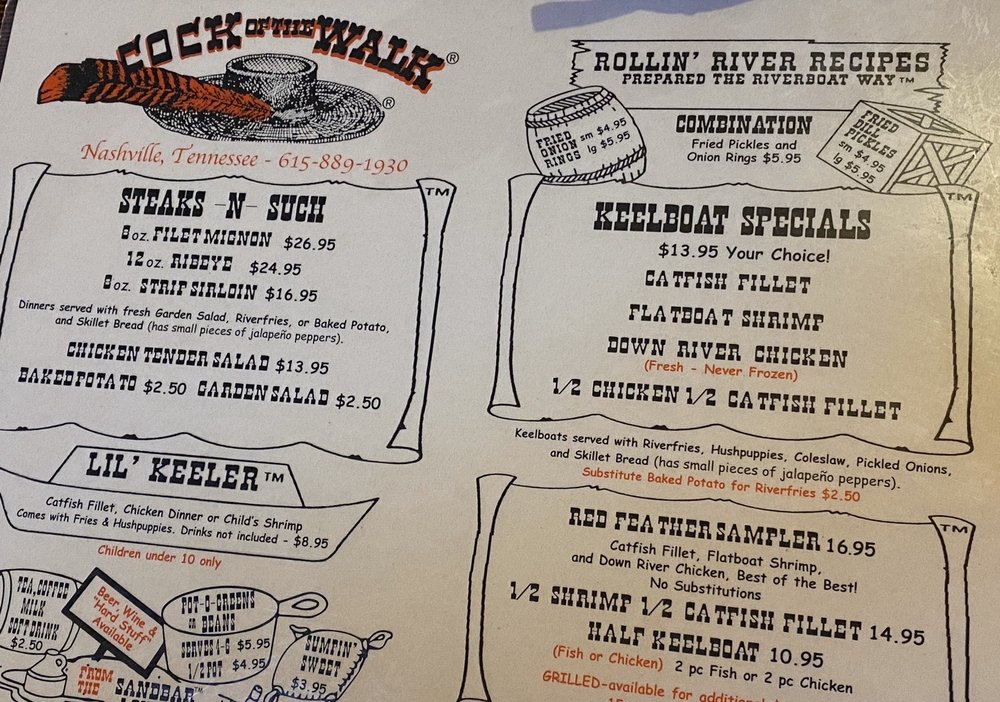 COCK OF THE WALK®
®
Nashville, Tennessee - 615-889-1930
STEAKS -N- SUCH
TM
8 oz. FILET MIGNON $26.95
12 oz. RIBEYE $24.95
8 oz. STRIP SIRLOIN $16.95
Dinners served with fresh Garden Salad, Riverfries, or Baked Potato,
and Skillet Bread (has small pieces of jalapeño peppers).
CHICKEN TENDER SALAD $13.95
BAKED POTATO $2.50 GARDEN SALAD $2.50
LIL' KEELER™
Catfish Fillet, Chicken Dinner or Child's Shrimp
Comes with Fries & Hushpuppies. Drinks not included - $8.95
Children under 10 only
TEA, COFFEE
MILK
SOFT DRINK
$2.50
Beer, Wine &
"Hard Stuff"
Available
FROM
THE
SANDBAR™
POT-O-GREENS
OR BEANS
SERVES 4-6 $5.95
1/2 POT $4.95
SUMPIN'
SWEET
$3.95
ROLLIN' RIVER RECIPES
PREPARED THE RIVERBOAT WAY™
FRIED
ONION
RINGS
sm $4.95
lg $5.95
COMBINATION
Fried Pickles and
Onion Rings $5.95
FRIED
DILL
PICKLES
sm $4.95
lg $5.95
TM
KEELBOAT SPECIALS
$13.95 Your Choice!
CATFISH FILLET
FLATBOAT SHRIMP
DOWN RIVER CHICKEN
(Fresh - Never Frozen)
1/2 CHICKEN 1/2 CATFISH FILLET
Keelboats served with Riverfries, Hushpuppies, Coleslaw, Pickled Onions,
and Skillet Bread (has small pieces of jalapeño peppers).
Substitute Baked Potato for Riverfries $2.50
TM
RED FEATHER SAMPLER 16.95
Catfish Fillet, Flatboat Shrimp,
and Down River Chicken, Best of the Best!
No Substitutions
1/2 SHRIMP 1/2 CATFISH FILLET 14.95
HALF KEELBOAT 10.95
(Fish or Chicken) 2 pc Fish or 2 pc Chicken
GRILLED-available for